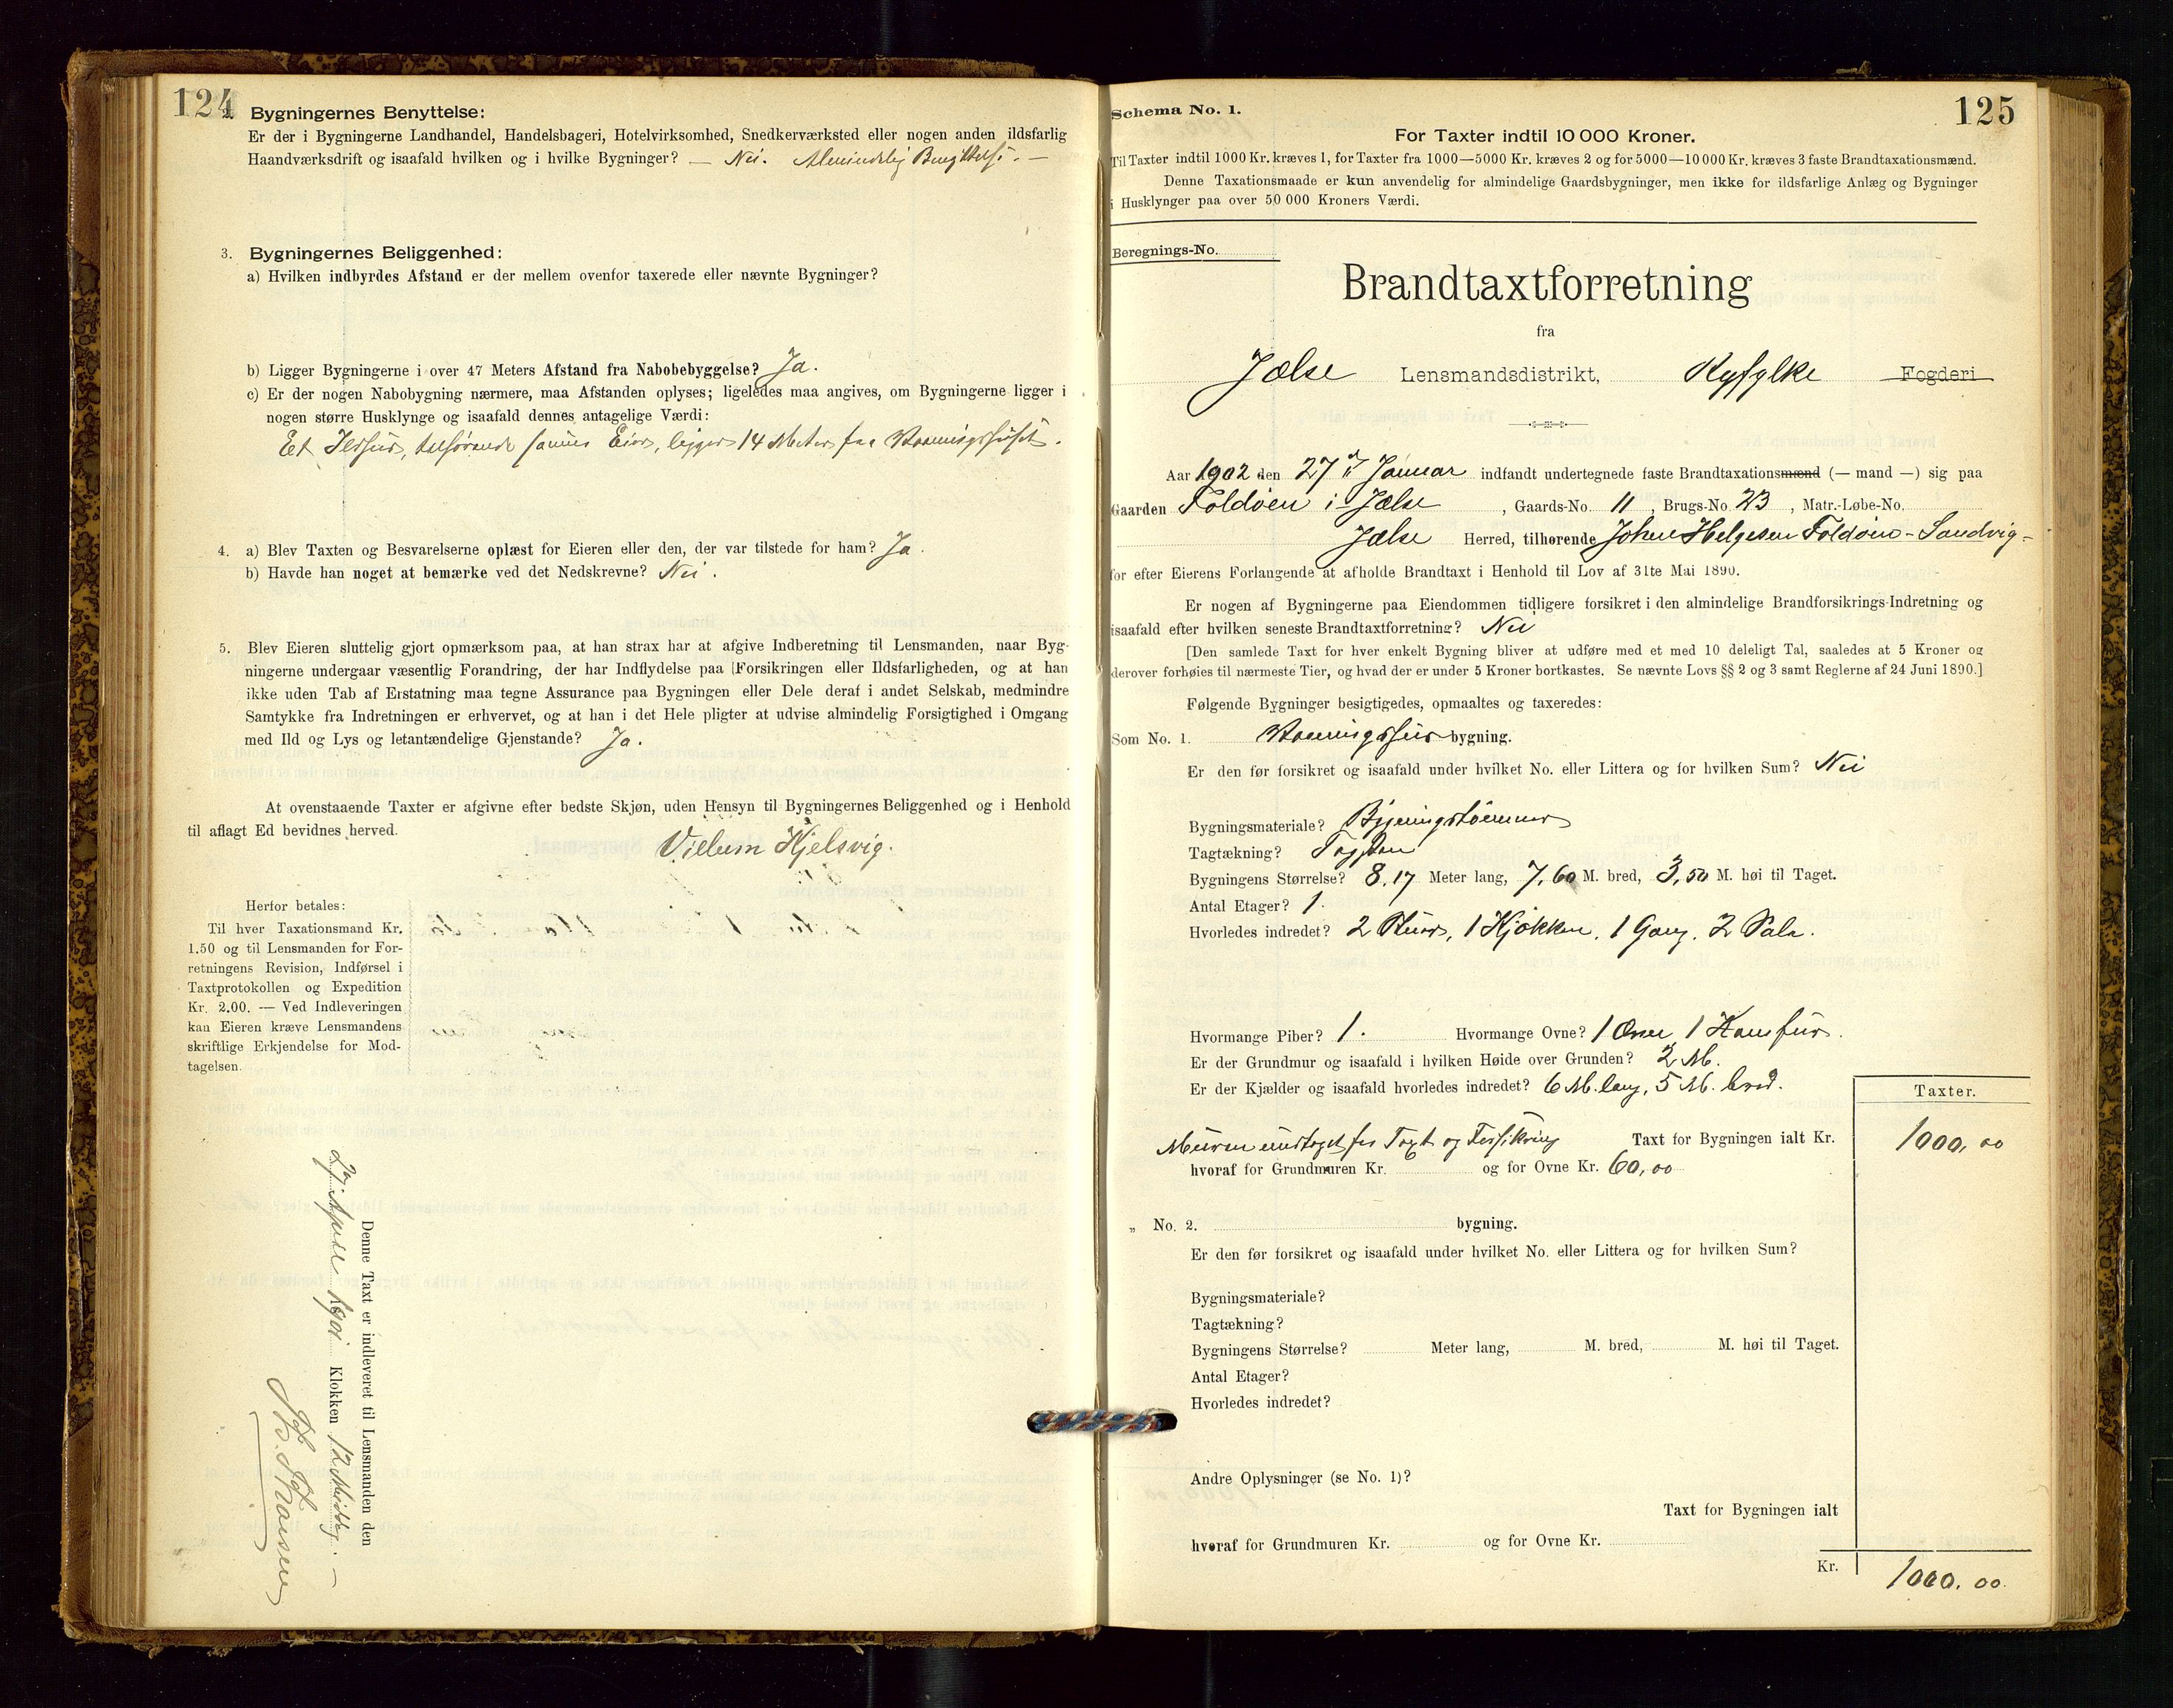 124
2. Bygningernes Benyttelse:
Er der i Bygningerne Landhandel, Handelsbageri, Hotelvirksomhed, Snedkerværksted eller nogen anden ildsfarlig
Haandværksdrift og isaafald hvilken og i hvilke Bygninger? — Nei. Almindelig Benyttelse. —
3. Bygningernes Beliggenhed:
a) Hvilken indbyrdes Afstand er der mellem ovenfor taxerede eller nævnte Bygninger?
b) Ligger Bygningerne i over 47 Meters Afstand fra Nabobebyggelse? Ja.
c) Er der nogen Nabobygning nærmere, maa Afstanden oplyses; ligeledes maa angives, om Bygningerne ligger i
nogen større Husklynge og isaafald dennes antagelige Værdi:
Et Ildhus, tilhørende samme Eier, ligger 14 Meter fra Vaaningshuset.
4. a) Blev Taxten og Besvarelserne oplæst for Eieren eller den, der var tilstede for ham? Ja.
b) Havde han noget at bemærke ved det Nedskrevne? Nei.
5. Blev Eieren sluttelig gjort opmærksom paa, at han strax har at afgive Indberetning til Lensmanden, naar Byg-
ningerne undergaar væsentlig Forandring, der har Indflydelse paa Forsikringen eller Ildsfarligheden, og at han
ikke uden Tab af Erstatning maa tegne Assurance paa Bygningen eller Dele deraf i andet Selskab, medmindre
Samtykke fra Indretningen er erhvervet, og at han i det Hele pligter at udvise almindelig Forsigtighed i Omgang
med Ild og Lys og letantændelige Gjenstande? Ja.
At ovenstaaende Taxter er afgivne efter bedste Skjøn, uden Hensyn til Bygningernes Beliggenhed og i Henhold
til aflagt Ed bevidnes herved.
Villum Hjelsvig.
Herfor betales:
Til hver Taxationsmand Kr.
1.50 og til Lensmanden for For-
retningens Revision, Indførsel i
Taxtprotokollen og Expedition
Kr. 2.00. — Ved Indleveringen
kan Eieren kræve Lensmandens
skriftlige Erkjendelse for Mod-
tagelsen.
Denne Taxt er indleveret til Lensmanden den
April 1901 Klokken 12 Middag. —
125
Schema No. 1.
For Taxter indtil 10 000 Kroner.
Til Taxter indtil 1000 Kr. kræves 1, for Taxter fra 1000—5000 Kr. kræves 2 og for 5000—10 000 Kr. kræves 3 faste Brandtaxationsmænd.
Denne Taxationsmaade er kun anvendelig for almindelige Gaardsbygninger, men ikke for ildsfarlige Anlæg og Bygninger
i Husklynger paa over 50 000 Kroners Værdi.
Beregnings-No.
Brandtaxtforretning
fra
Jælse Lensmandsdistrikt, Ryfylke Fogderi
Aar 1902 den 27de Januar indfandt undertegnede faste Brandtaxationsmænd (— mand —) sig paa
Gaarden Foldøen i Jælse, Gaards-No. 11, Brugs-No. 23, Matr.-Løbe-No.
Jælse Herred, tilhørende Johan Helgesen Foldøen - Sandvig -
for efter Eierens Forlangende at afholde Brandtaxt i Henhold til Lov af 31te Mai 1890.
Er nogen af Bygningerne paa Eiendommen tidligere forsikret i den almindelige Brandforsikrings-Indretning og
isaafald efter hvilken seneste Brandtaxtforretning? Nei
[Den samlede Taxt for hver enkelt Bygning bliver at udføre med et med 10 deleligt Tal, saaledes at 5 Kroner og
derover forhøies til nærmeste Tier, og hvad der er under 5 Kroner bortkastes. Se nævnte Lovs §§ 2 og 3 samt Reglerne af 24 Juni 1890.]
Følgende Bygninger besigtigedes, opmaaltes og taxeredes:
Som No. 1. Vaaningshus bygning.
Er den før forsikret og isaafald under hvilket No. eller Littera og for hvilken Sum? Nei
Bygningsmateriale? Bygningstømmer
Tagtækning? Tagsten
Bygningens Størrelse? 8,17 Meter lang, 7,60 M. bred, 3,50 M. høi til Taget.
Antal Etager? 1.
Hvorledes indredet? 2 Stuer, 1 Kjøkken, 1 Gang. 2 Sale.
Hvormange Piber? 1. Hvormange Ovne? 1 Ovn 1 Komfur.
Er der Grundmur og isaafald i hvilken Høide over Grunden? 2 M.
Er der Kjælder og isaafald hvorledes indredet? 6 M. lang, 5 M. bred.
Taxter.
Muren undtaget for Taxt og Forsikring Taxt for Bygningen ialt Kr. 1000,00
hvoraf for Grundmuren Kr. og for Ovne Kr. 60,00
„ No. 2. bygning.
Er den før forsikret og isaafald under hvilket No. eller Littera og for hvilken Sum?
Bygningsmateriale?
Tagtækning?
Bygningens Størrelse? Meter lang, M. bred, M. høi til Taget.
Antal Etager?
Hvorledes indredet?
Andre Oplysninger (se No. 1)?
Taxt for Bygningen ialt
hvoraf for Grundmuren Kr. og for Ovne Kr.
Kr. 1000.00.